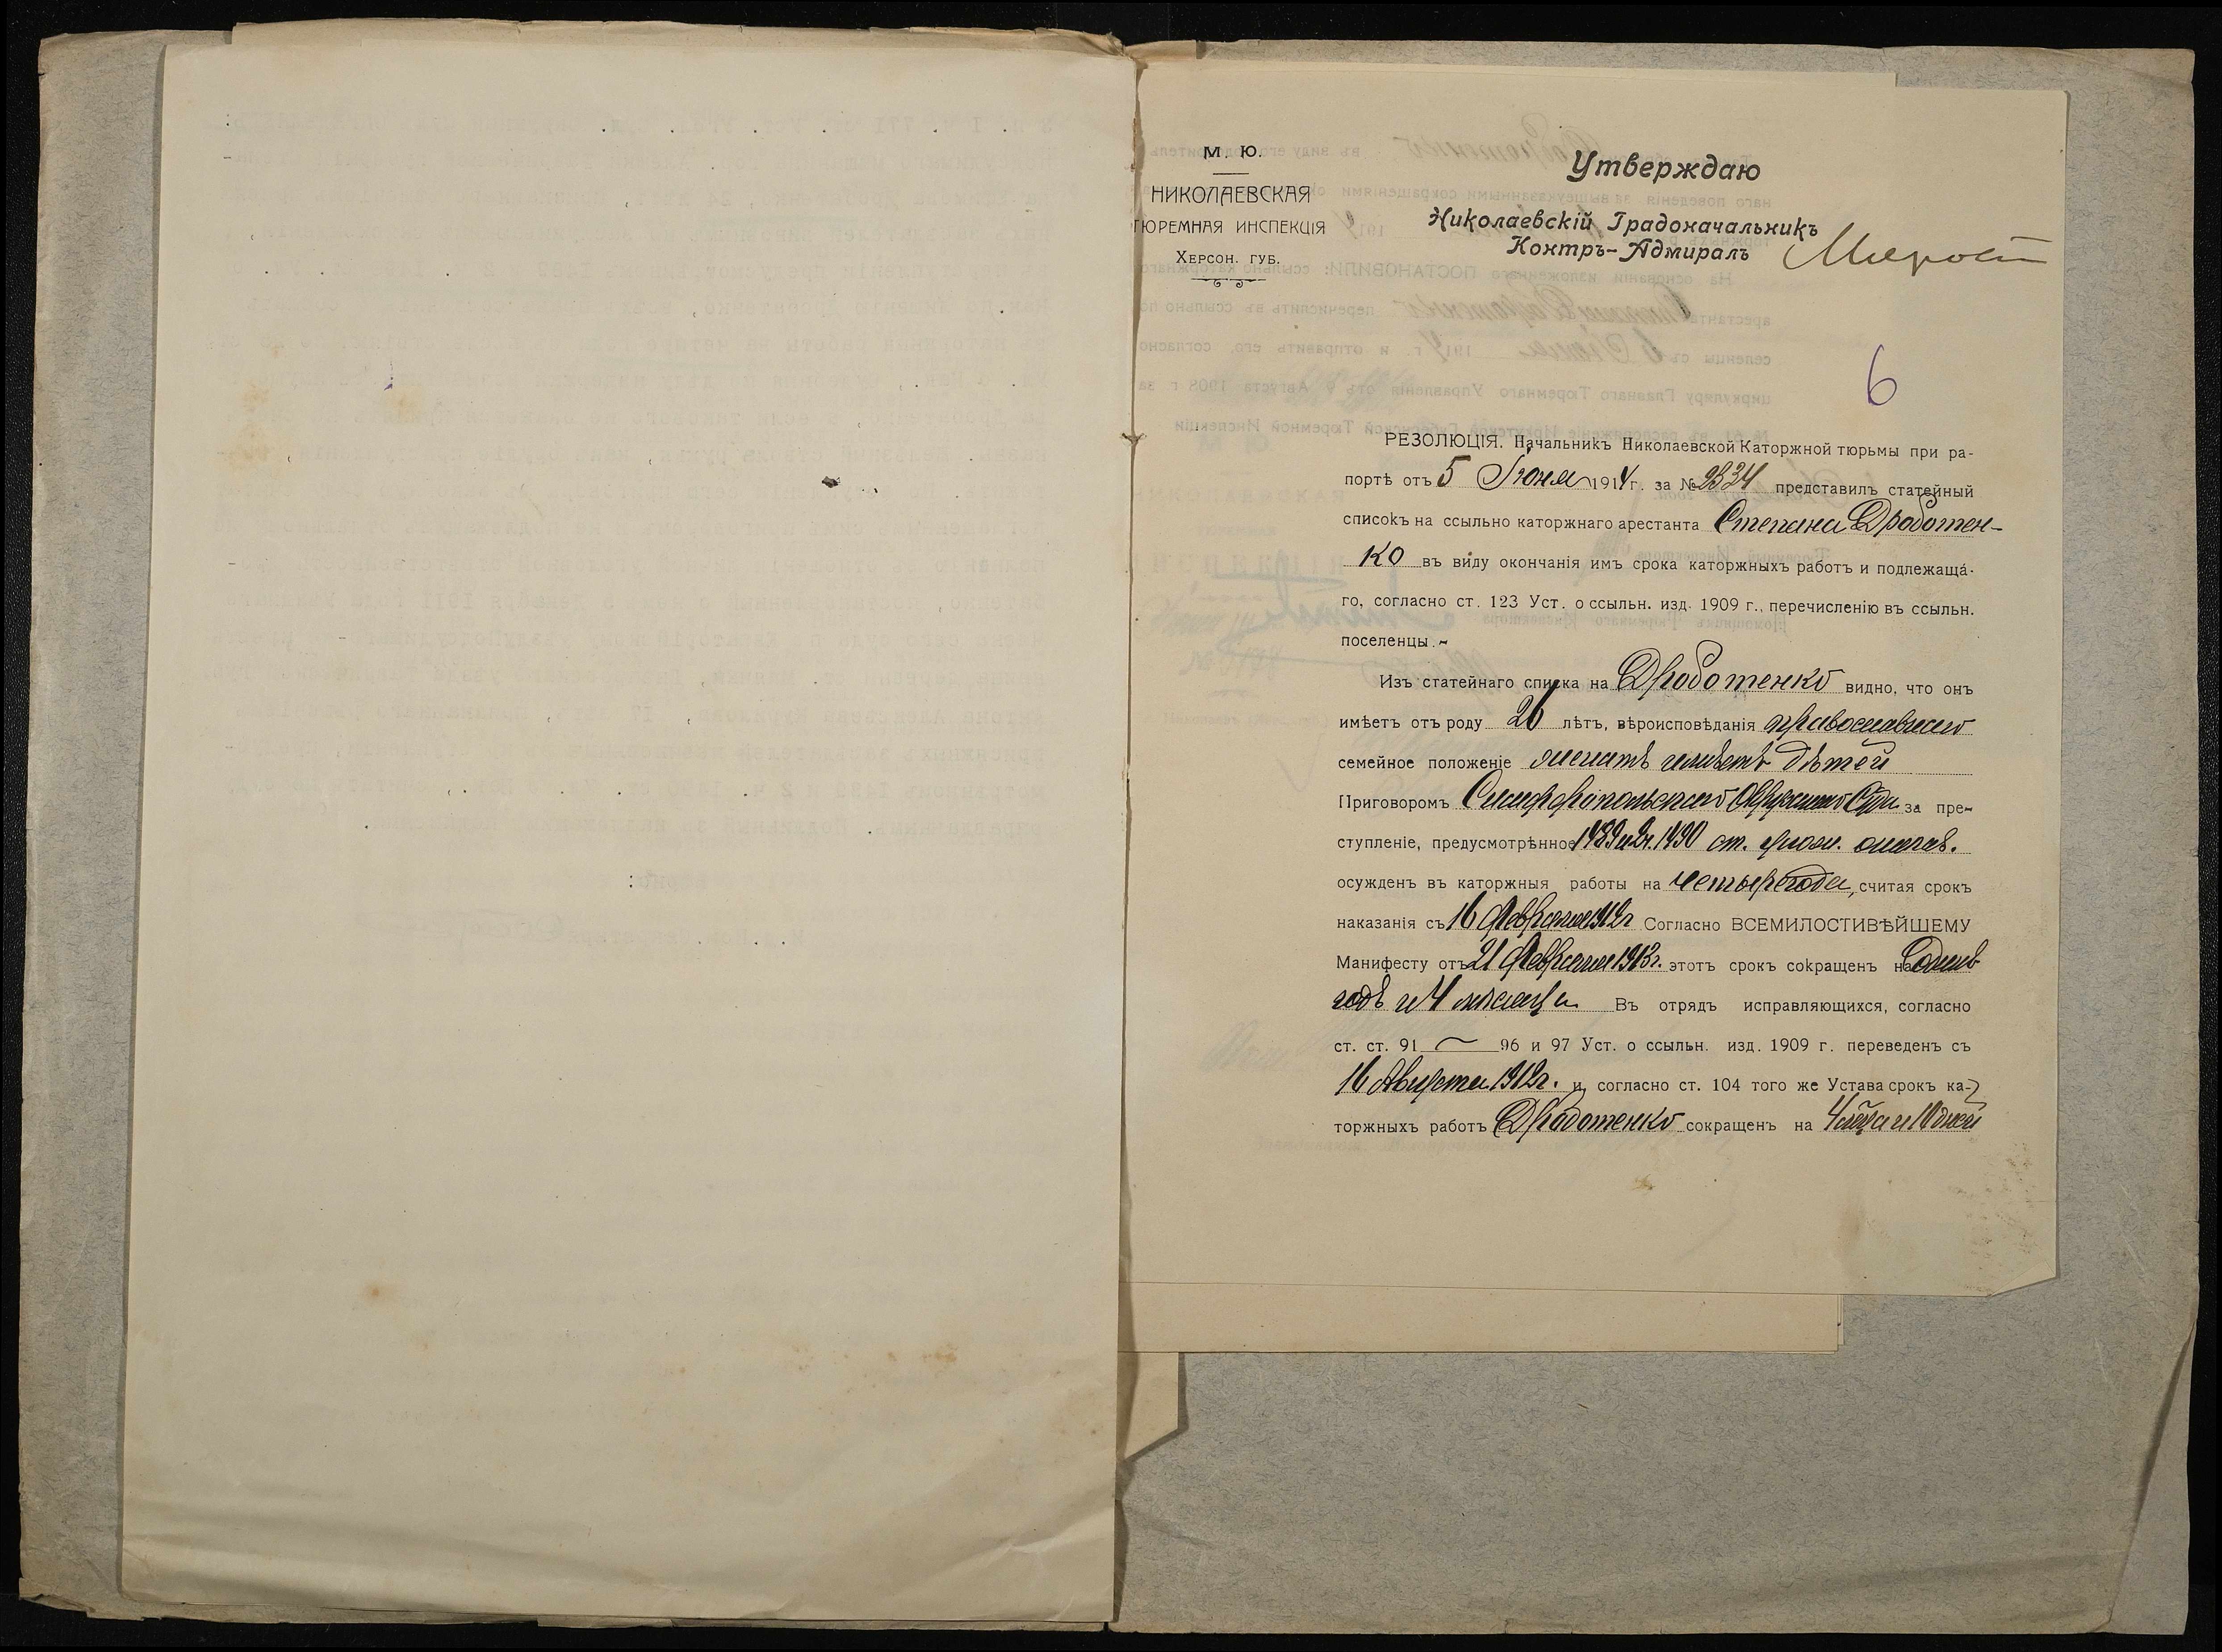 М. Ю.
НИКОЛАЕВСКАЯ
ТЮРЕМНАЯ ИНСПЕКЦІЯ
ХЕРСОН. ГУБ.
Утверждаю
Николаевскій Градоначальникъ
Контръ-Адмиралъ
6
РЕЗОЛЮЦІЯ. Начальникъ Николаевской Каторжной тюрьмы при ра-
портѣ отъ 5 Іюня 1914 г. за № 2334 представилъ статейный
списокъ на ссыльно каторжнаго арестанта Степана Дроботен-
ко въ виду окончанія имъ срока каторжныхъ работъ и подлежаща-
го, согласно ст. 123 Уст. о ссыльн. изд. 1909 г., перечисленію въ ссыльн.
поселенцы.~
Изъ статейнаго списка на Дроботенко видно, что онъ
имѣетъ отъ роду 26 лѣтъ, вѣроисповѣданія православнаго
семейное положеніе женатъ имѣетъ дѣтей
Приговоромъ Симферопольскаго Окружнаго Суда за пре-
ступленіе, предусмотрѣнное 1489 и 2 ч. 1490 ст. улож. о наказ.
осужденъ въ каторжныя работы на четыре года, считая срокъ
наказанія съ 16 Февраля 1912 г Согласно ВСЕМИЛОСТИВѢЙШЕМУ
Манифесту отъ 21 Февраля 1913 г. этотъ срокъ сокращенъ на одинъ
годъ и 4 мѣсяца Въ отрядъ исправляющихся, согласно
ст. ст. 91 ~ 96 и 97 Уст. о ссыльн. изд. 1909 г. переведенъ съ
16 Августа 1912 г. и согласно ст. 104 того же Устава срокъ ка-
торжныхъ работъ Дроботенко сокращенъ на 4 мѣсяца и 10 дней